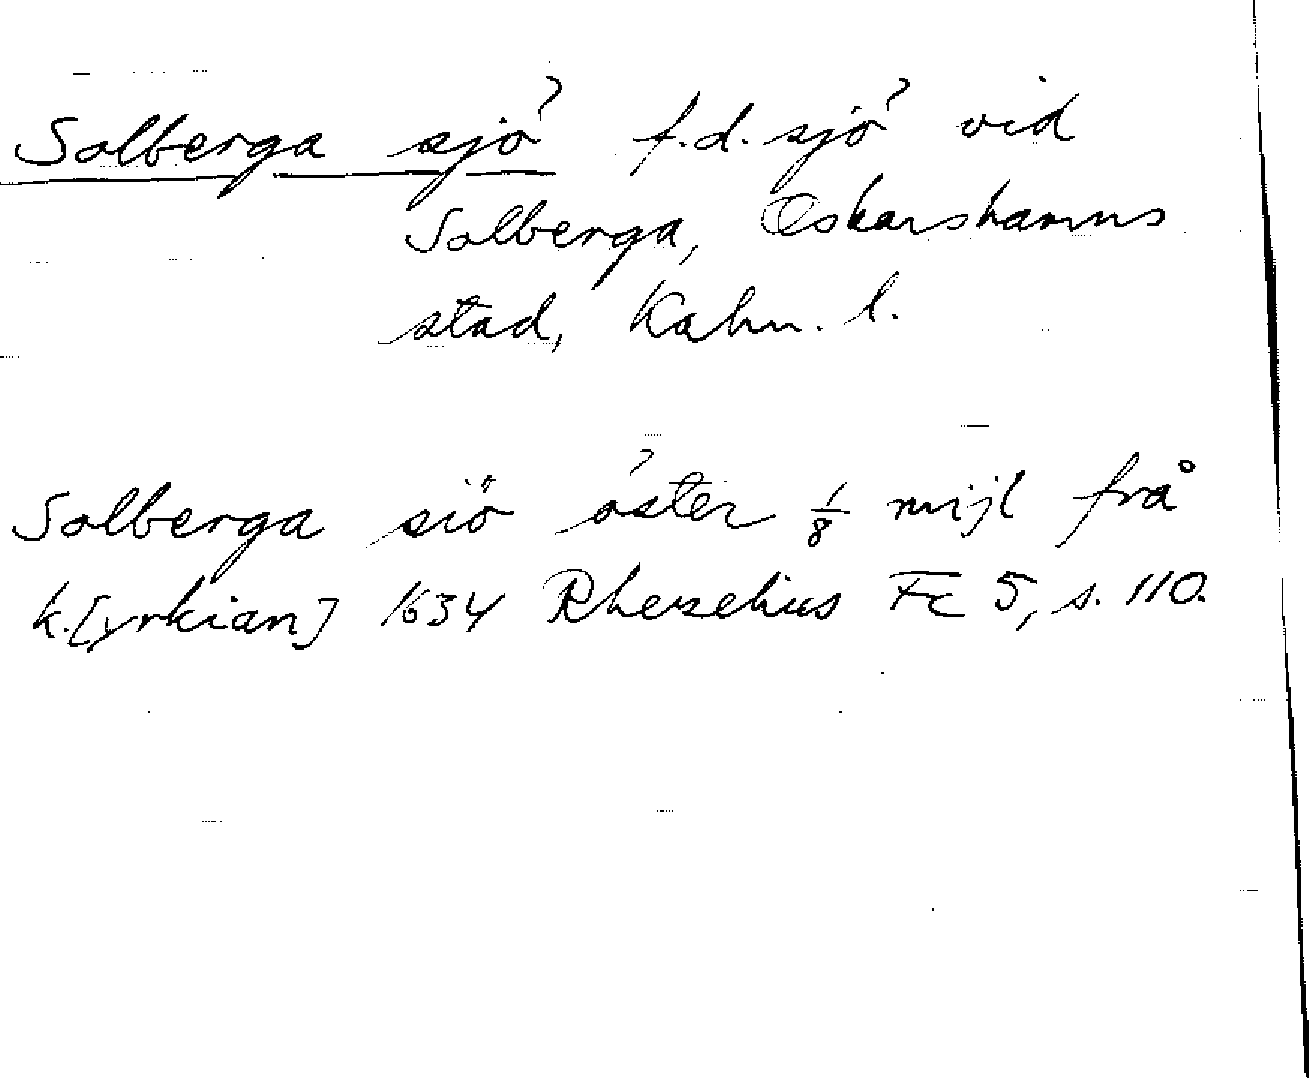 Solberga sjö f.d. sjö vid
Solberga, Oskarshamns
stad, Kalm. l.
Solberga siö öster 1/8 mijl frå
k.[yrkian] 1634 Rhezelius Fc 5, s. 110.